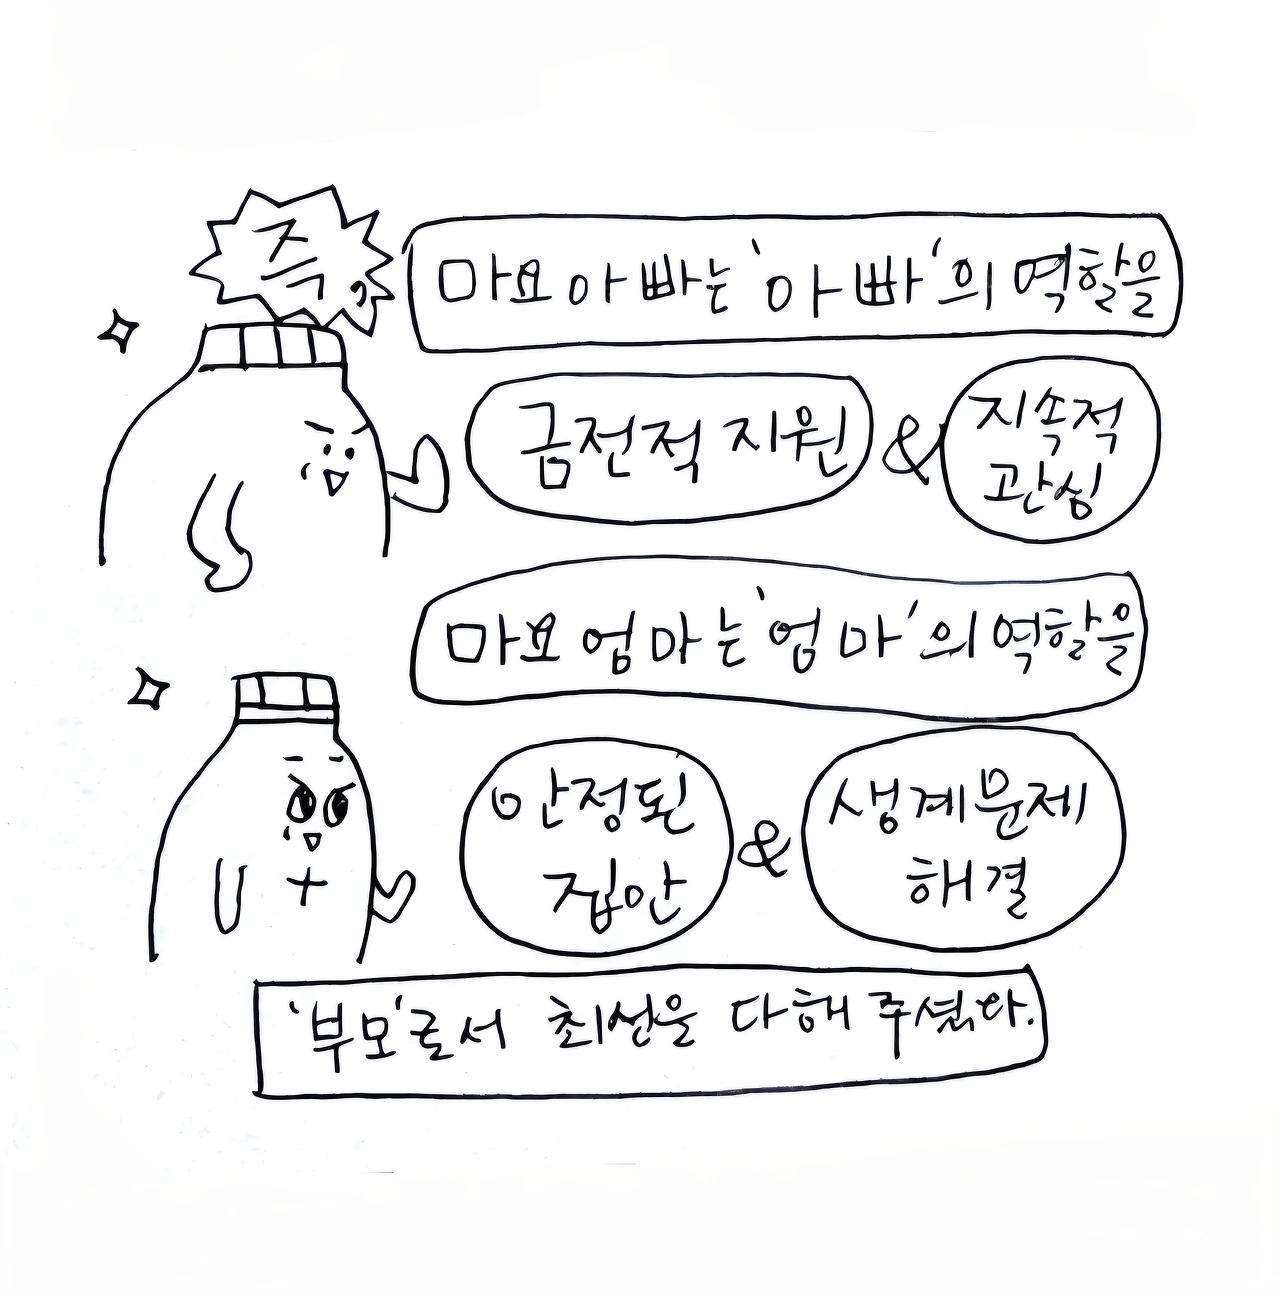 즉,
마요아빠는 '아빠'의 역할을
금전적 지원 & 지속적
관심
마요 엄마는 '엄마'의 역할을
안정된
집안
&
생계문제
해결
'부모'로서 최선을 다해 주셨다.